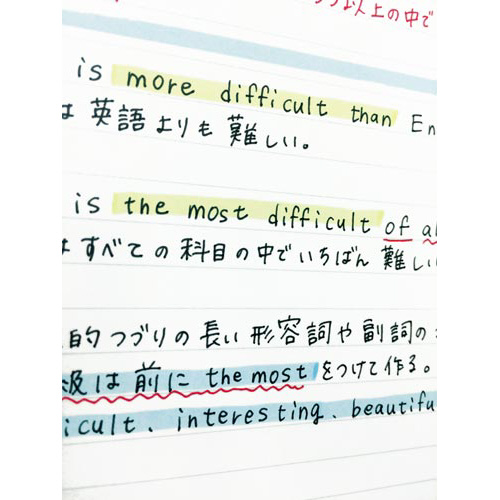 以上の中で
is more difficult than En
は英語よりも難しい。
is the most difficult of al
はすべての科目の中でいちばん難しい
的つづりの長い形容詞や副詞の
級は前に the most をつけて作る。
icult、interesting、beautifu